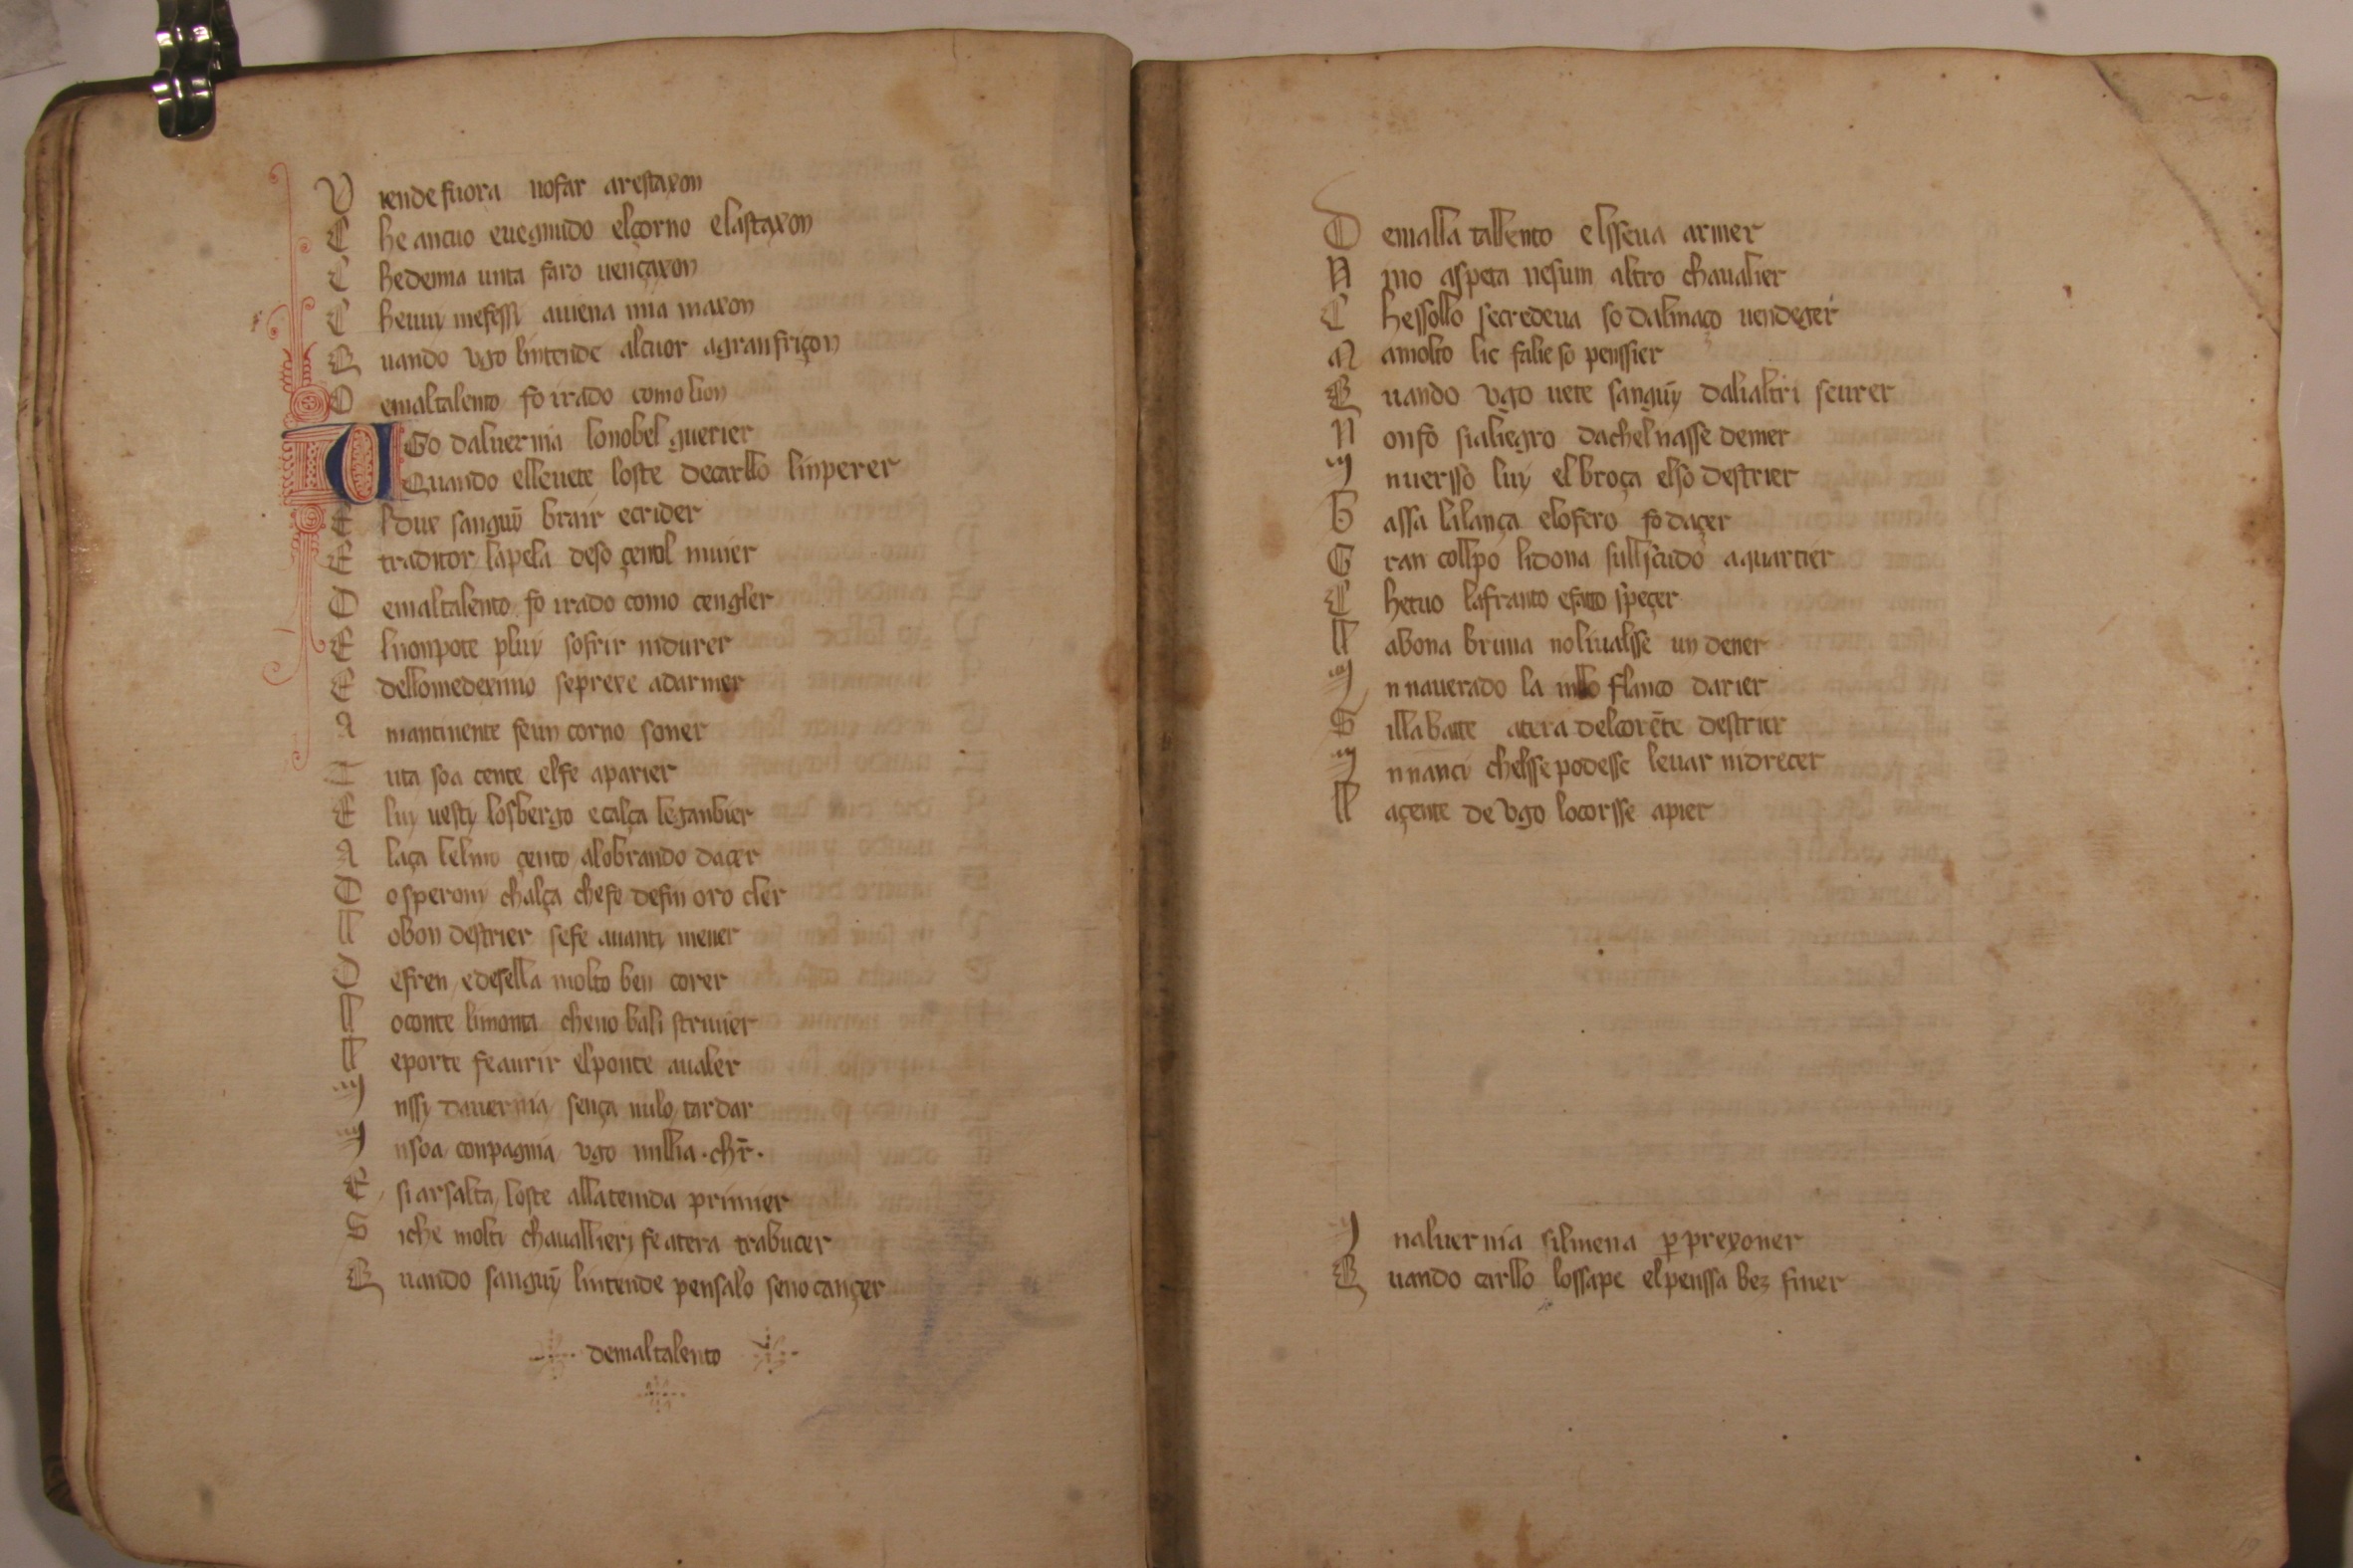 V iende fuora no far arestaxon
C he ancuo evegnudo elçorno elastaxon
C hedemia unta faro vençaxon
C hevuy mefessy aviena mia maxon
Q uando vgo lintende alcuor agranfriçon
D emaltalento fo irado como lion
UGo daluernia lonobel guerier
Quando ellevete loste decarllo linperer
E ldux sanguȳ brair ecrider
E traditor lapela deso çentil muier
D emaltalento fo irado como cengler
E lnonpote pluy sofrir nidurer
E dellomedeximo seprexe adarmer
A mantinente fe un corno soner
T uta soa cente elfe aparier
E luy vesty losbergo ecalça leganbier
A laça lelmo çento alobrando daçer
D o speroni chalça chefe defin oro cler
ll obon destrier sefe avanty mener
D efren edesella molto ben corer
ll oconte limonta cheno bali strivier
ll eporte fe aurir elponte avaler
I nssy davernia sença nulo tardar
I nsoa conpagnia vgo millia .chr̄.
E si arsalta loste allatenida primier
S iche molti chavallierj fe atera trabucer
Q uando sanguȳ lintende pensalo seno cançer
demaltalento
D emalla tallento elsseva armer
N ino aspeta nesum altro chavalier
C hessollo secredeva so dalmaço vendeger
M amolto lie falie so penssier
Q uando vgo vete sanguȳ dalialtri sevrer
N onfo sialiegro dachel nasse demer
I nversso luy el broça elso destrier
B assa lilança elofero fo daçer
G ran collpo lidona sullscudo aquartier
C hetuo lafranto efatto speçer
ll abona bruna nolivalsse un dener
I nnaverado la inllo flanco darier
S illa batte atera delcorēte destrier
I nnanci chelsse podesse levar nidrecer
ll açente de vgo locorsse apier
I naluernia silmena ꝑ prexoner
Q uando carllo lossape elpenssa bez finer